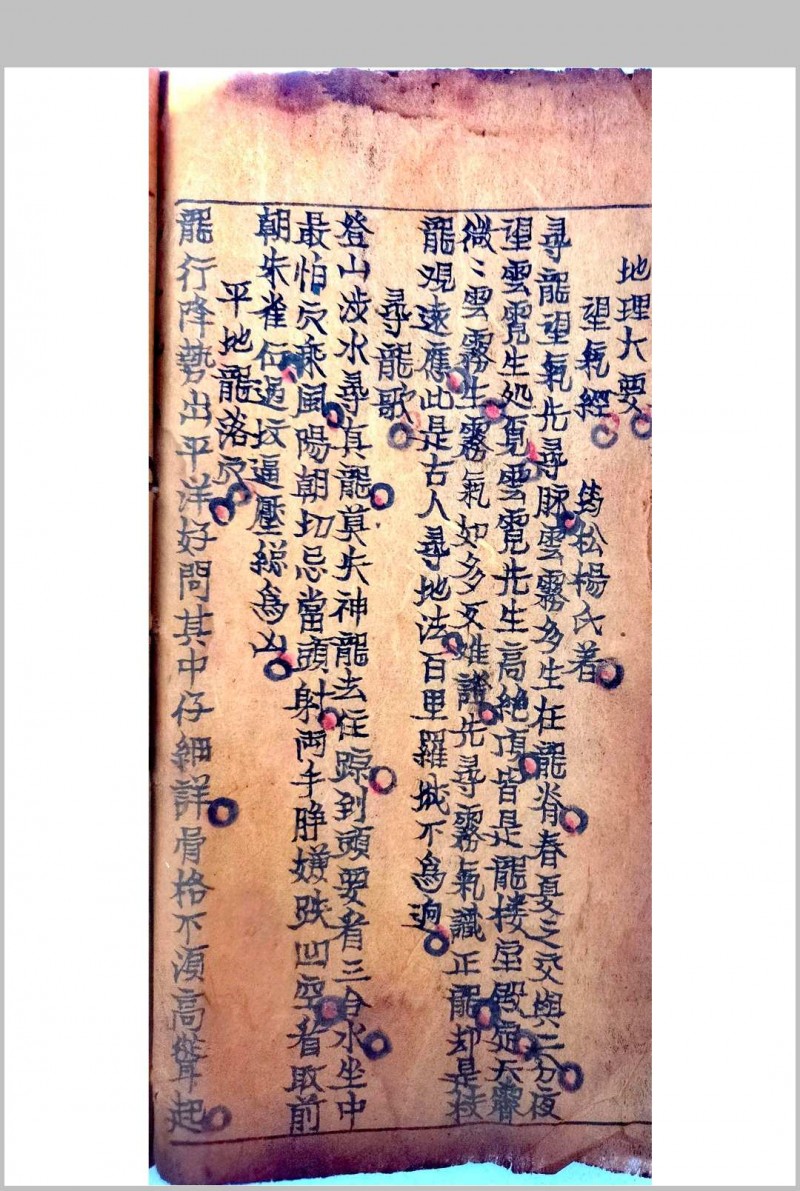 地理大要
望氣經 筠松楊氏著
尋龍望氣先尋脉雲霧多生在龍脊春夏之交與二分夜
望雲霓生処覓雲霓先生高絶頂皆是龍楼宝殿定大霽
微〻雲霧生霧氣如多反难諸先尋霧氣識正龍却是枝
龍观遠應此是古人尋地法百里羅城不為迥
尋龍歌
登山涉水尋真龍莫失神龍去住踪到頭要看三合水坐中
最怕穴乘風陽朝切忌當頭射両手睁嫌跌凹空看取前
朝朱雀位逼坟逼壓縂為凶
平地龍落穴
龍行降勢出平洋好問其中仔細詳骨格不須高聳起